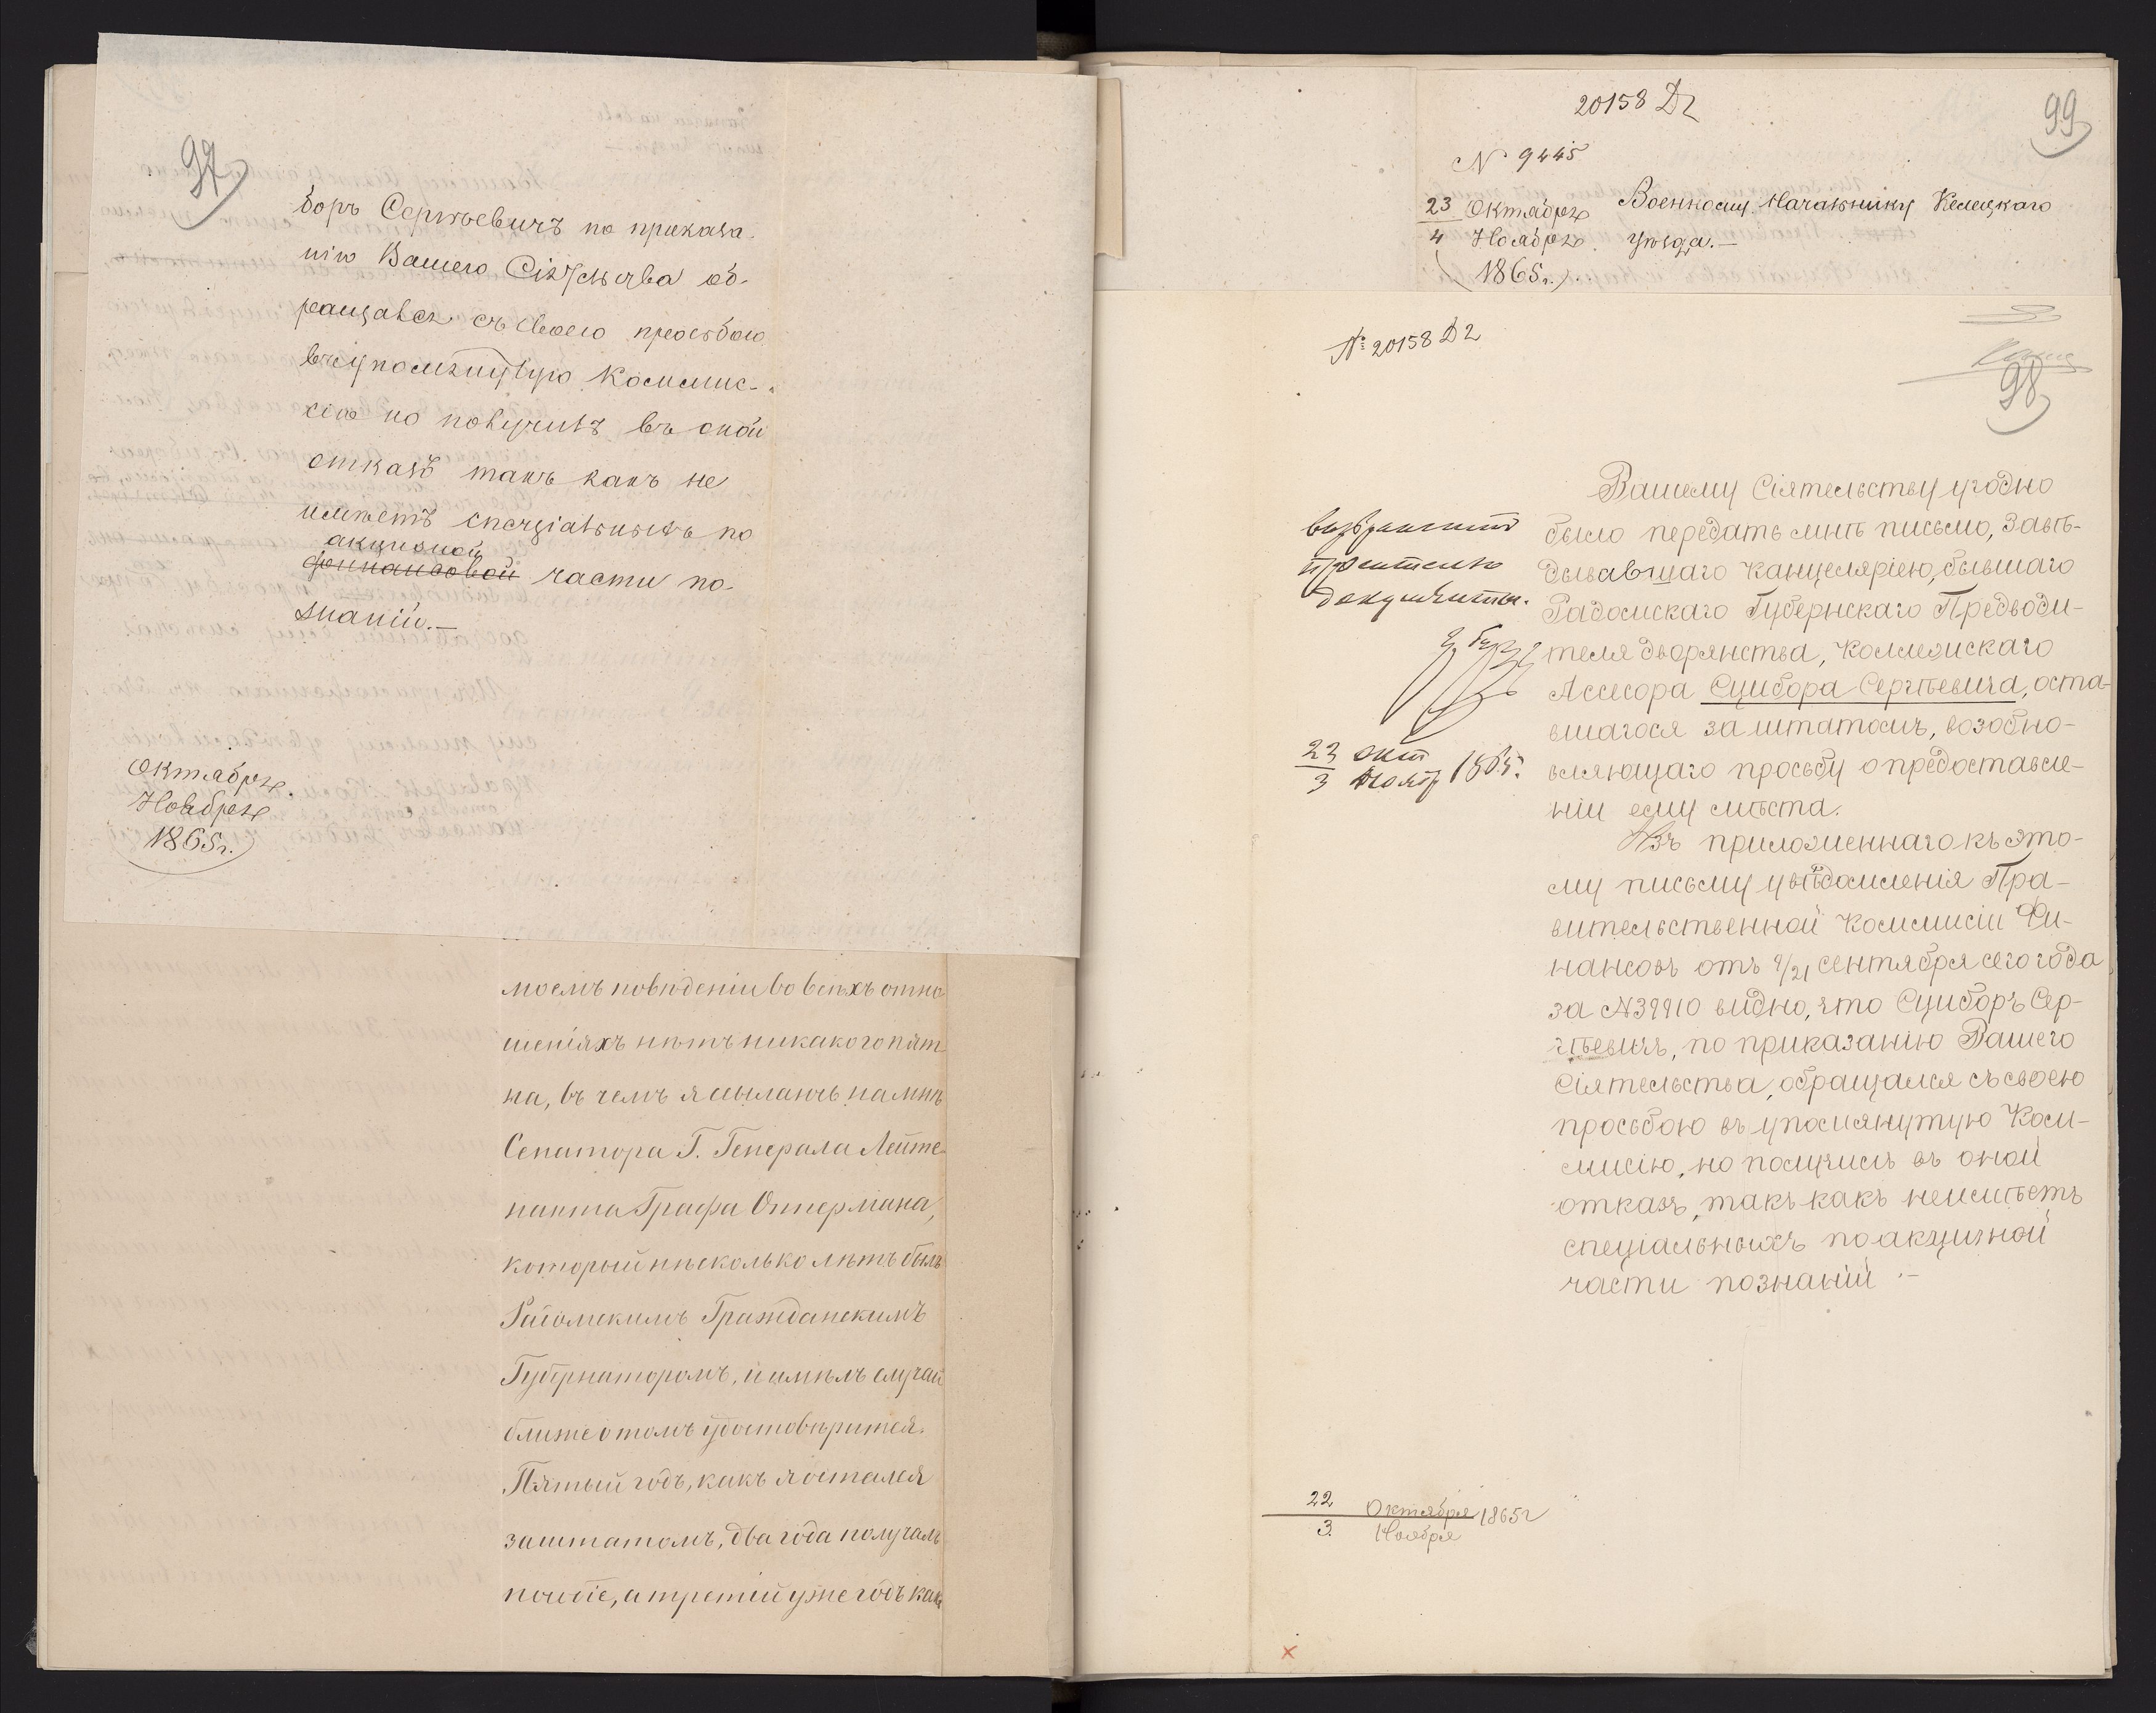 97
боръ Сергѣевичъ по приказа-
нію Вашего Сіятельства об-
ращался съ своею просьбою
въ упомянутую Коммис-
сію но получилъ въ оной
отказъ такъ какъ не
имѣетъ спеціальныхъ по
акцизной
финансовой части по-
знаній.—
Октября
Ноября
1865 г.
моемъ поведеніи во всѣхъ отно-
шеніяхъ нѣтъ никакого пят-
на, въ чемъ я ссылаюсь на мнѣ
Сенатора Г. Генерала Лейте-
нанта Графа Оппермана,
который нѣсколько лѣтъ былъ
Радомскимъ Гражданскимъ
Губернаторомъ, и имѣлъ случай
ближе о томъ удостовѣрится.
Пятый годъ, какъ я остался
заштатомъ, два года получалъ
пособіе, а третій уже годъ какъ
20158 Д2
99
N 9445
23 Октября
4 Ноября
1865 г.
Военному Начальнику Келецкаго
уѣзда.—
№ 20158 Д2
98
Вашему Сіятельству угодно
было передать мнѣ письмо, Завѣ-
дывавшаго Канцеляріею, бывшаго
Радомскаго Губернскаго Предводи-
теля дворянства, Коллежскаго
Ассесора Сцибора Сергѣевича, оста-
вшагося за штатомъ, возобно-
вляющаго просьбу о предоставле-
ніи ему мѣста.
Изъ приложеннаго къ это-
му письму увѣдомленія Пра-
вительственной Коммисіи Фи-
нансовъ отъ 9/21 Сентября сего года
за N39910 видно, что Сциборъ Сер-
гѣевичъ, по приказанію Вашего
Сіятельства, обращался съ своею
просьбою въ упомянутую Ком-
мисію, но получилъ въ оной
отказъ, такъ какъ неимѣетъ
спеціальныхъ по акцизной
части познаній.—
документы.
23 Окт
3 Ноябр 1865.
22 Октября 1865 г
3 Ноября